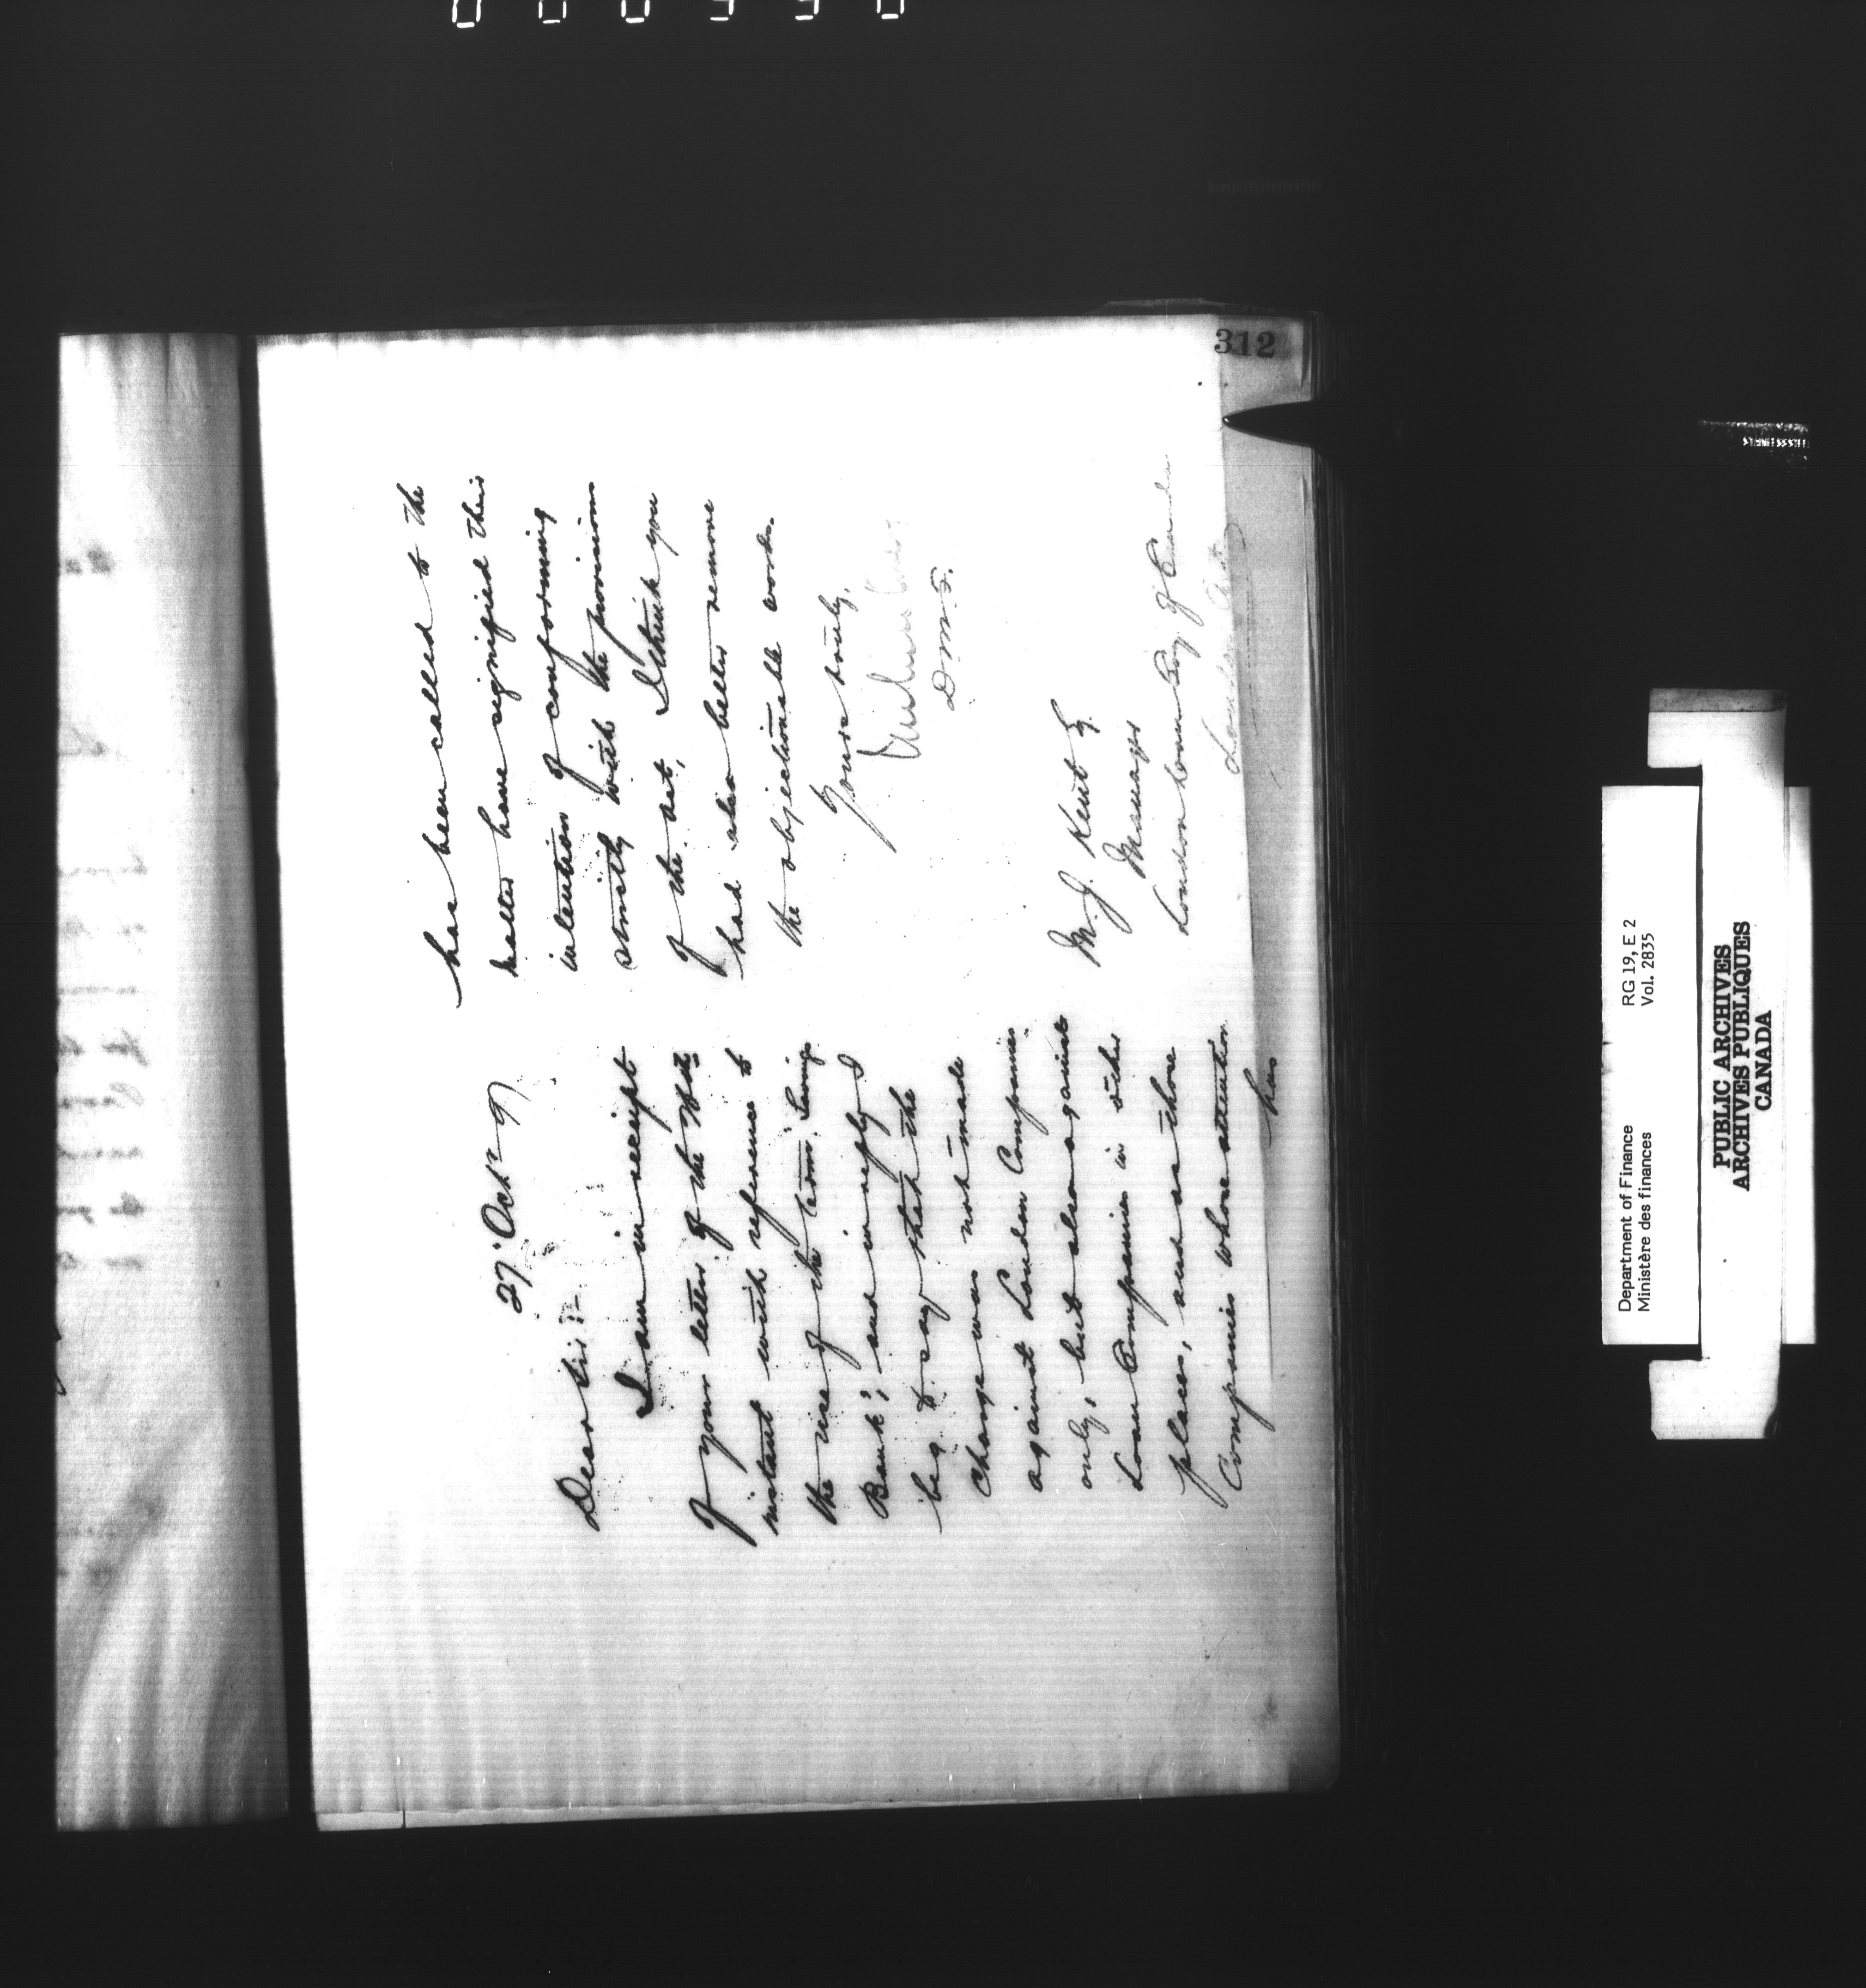 312
27 Oct 97
Dear Sir :-
I am in receipt
of your letter of the
instant with reference to
the use of the term "Savings
Bank"; and in reply I
beg to say that the
charge was not made
against London Companies
only, but also against
Loan Companies in other
places, and as those
Companies whose attention
has
has been called to the
matter have signified their
intention of conforming
strictly with the provisions
of the act, I think you
had also better remove
the objectionable words.
Yours truly,
D.M.F.
M. J. Kent Esq.
Manager
London Loan Coy of Canada
London Ont.
Department of Finance RG 19, E 2
Ministère des finances Vol. 2835
PUBLIC ARCHIVES
ARCHIVES PUBLIQUES
CANADA